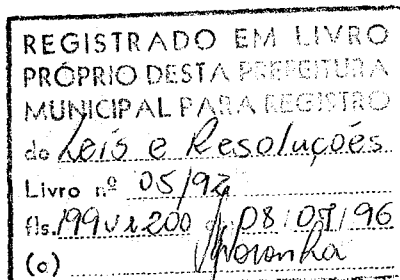 REGISTRADO EM LIVRO
PRÓPRIO DESTA PREFEITURA
MUNICIPAL PARA REGISTRO
de Leis e Resoluções
Livro nº 05/92
fls. 199v e 200 08/07/96
(a) Noronha